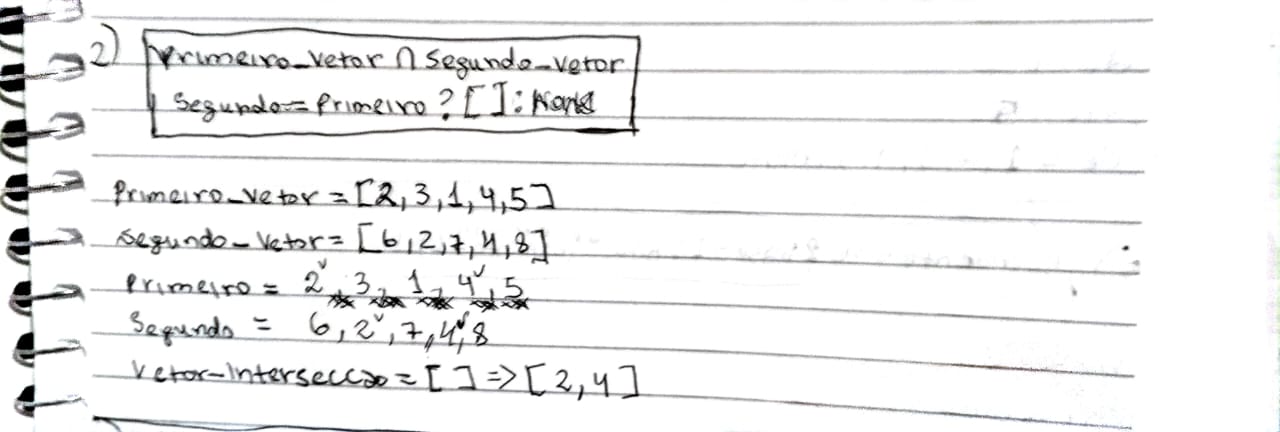 2) Primeiro_vetor ∩ Segundo_vetor
Segundo = Primeiro ? [ ] : None
Primeiro_vetor = [2, 3, 1, 4, 5]
Segundo_vetor = [6, 2, 7, 4, 8]
Primeiro = 2✓, 3, 1, 4✓, 5
Segundo = 6, 2✓, 7, 4✓, 8
Vetor_Intersecção = [ ] => [2, 4]